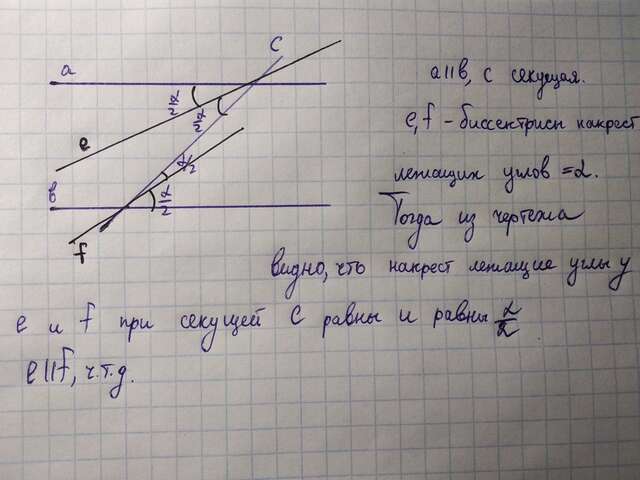 C
a
α/2
α/2
e
α/2
α/2
в
f
a||в, c секущая.
e, f - биссектрисы накрест
лежащих углов = α.
Тогда из чертежа
видно, что накрест лежащие углы у
e и f при секущей C равны и равны α/2
e||f, ч.т.д.